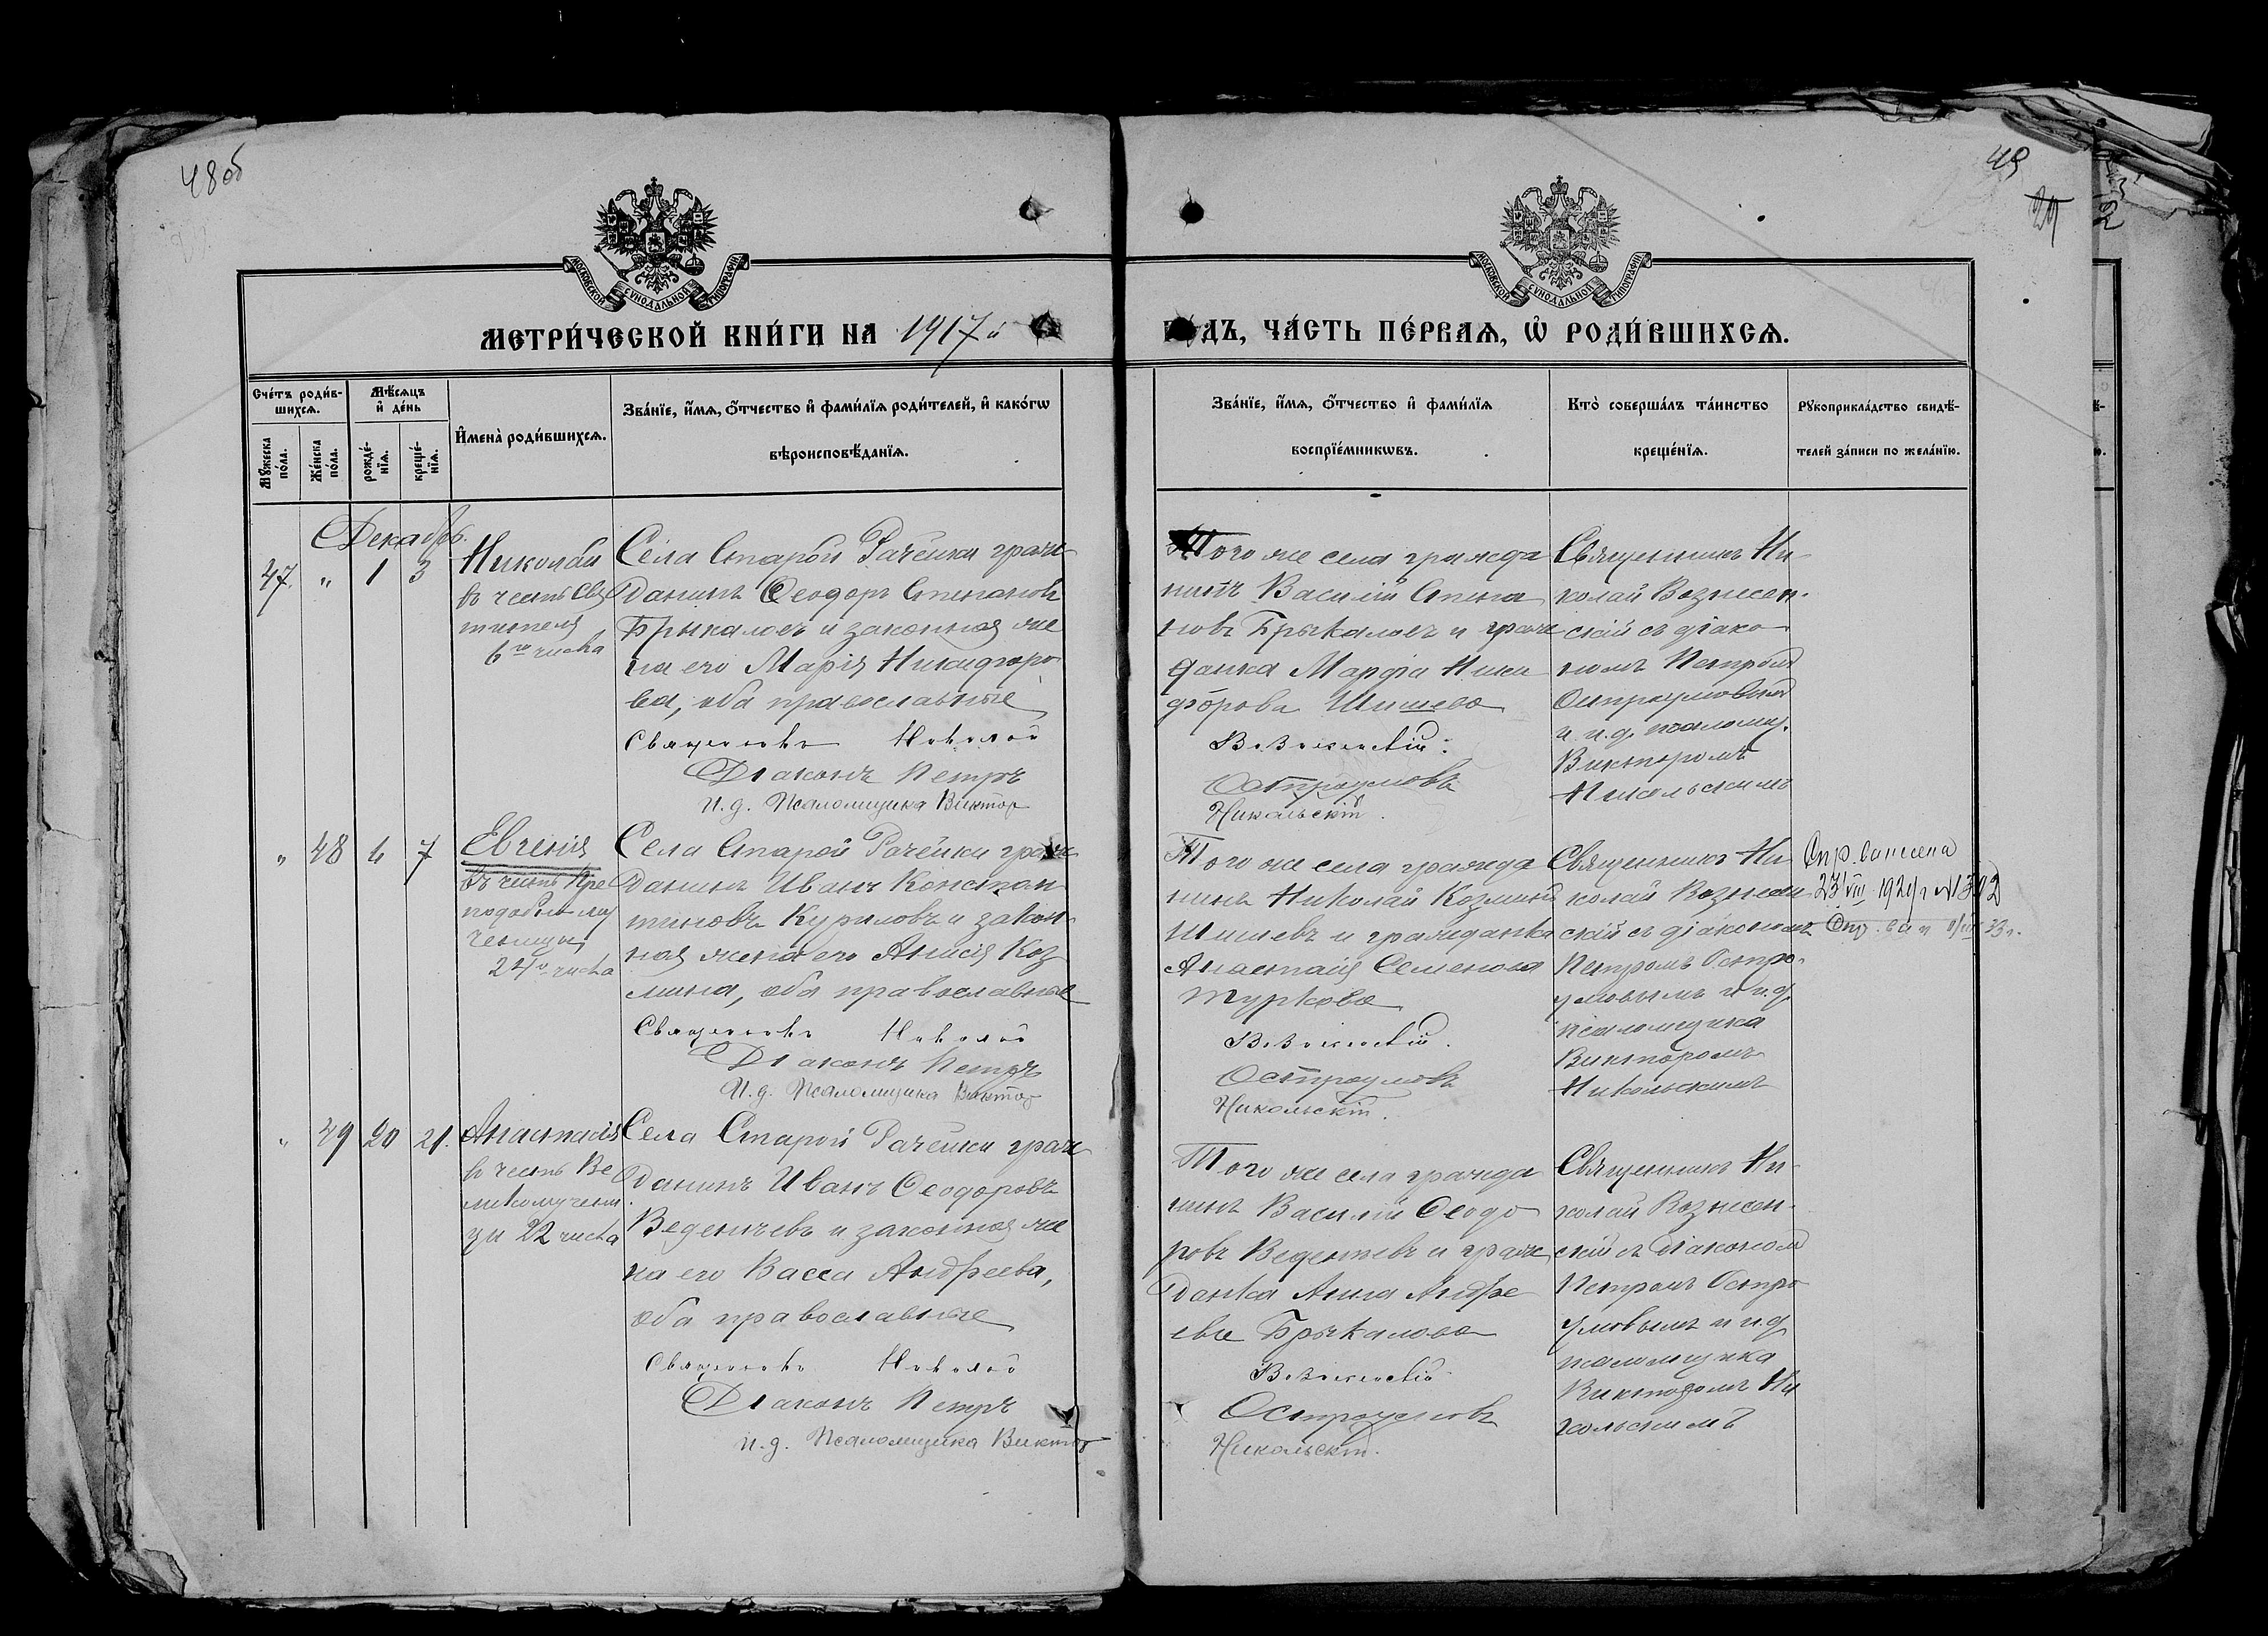 48об
49
29
2
МОСКОВСКОЙ СѴНОДАЛЬНОЙ ТИПОГРАФІИ
МОСКОВСКОЙ СѴНОДАЛЬНОЙ ТИПОГРАФІИ
МЕТРИ́ЧЕСКОЙ КНИ́ГИ НА 1917й
ДЪ, ЧА́СТЬ ПЕ́РВАѦ, Ѡ҆ РОДИ́ВШИХСѦ.
Сче́тъ роди́в-
шихсѧ.
Мѣ́сѧцъ
и҆ де́нь
Мꙋ́жеска
по́ла.
Же́нска
по́ла.
рожде́-
нїѧ.
креще́-
нїѧ.
И҆мена̀ роди́вшихсѧ.
Зва́нїе, и҆́мѧ, ѻ҆́тчество и҆ фами́лїѧ роди́телей, и҆ како́гѡ
вѣроисповѣ́данїѧ.
Зва́нїе, и҆́мѧ, ѻ҆́тчество и҆ фами́лїѧ
воспрїе́мникѡвъ.
Кто̀ соверша́лъ та́инство
креще́нїѧ.
Рꙋкоприкла́дство свидѣ́-
телей за́писи по жела́нїю.
Декабрь.
47. " 1 3
Николай
въ честь Свя
тителя
6го числа
Села Старой Рачейки граж
данинъ Ѳеодоръ Степановъ
Брыкаловъ и законная же
на его Марія Никифоро
ва, оба православные
Священникъ Николай
Діаконъ Петръ
И.д. Псаломщика Виктор
Того же села гражда
нинъ Василій Степа
новъ Брыкаловъ и граж
данка Марфа Ники
форова Шишева
Вознесенскій.
Остроумовъ
Никольскій.
Священникъ Ни
колай Вознесен-
скій съ діако
номъ Петромъ
Остроумовымъ
и и.д. псаломщ.
Викторомъ
Никольскимъ
" 48 6 7
Евгенія
въ честь Пре
подобно му
ченицы
24го числа
Села Старой Рачейки граж
данинъ Иванъ Констан
тиновъ Куриловъ и закон
ная жена его Анисія Коз
мина, оба православные
Священникъ Николай
Діаконъ Петръ
И.д. Псаломщика Виктор
Того же села гражда
нинъ Николай Козминъ
Шишевъ и гражданка
Анастасія Семенова
Туркова
Вознесенскій.
Остроумовъ
Никольскій.
Священникъ Ни
колай Вознесен
скій съ діакономъ
Петромъ Остро-
умовымъ и и.д.
псаломщика
Викторомъ
Никольскимъ
23 VIII 192
" 49 20 21.
Анастасія
въ честь Ве
ликомучени
цы 22 числа
Села Старой Рачейки граж
данинъ Иванъ Ѳеодоровъ
Веденичевъ и законная же
на его Васса Андреева,
оба православные
Священникъ Николай
Діаконъ Петръ
и.д. Псаломщика Виктор
Того же села гражда
нинъ Василій Ѳеодо
ровъ и граж
данка Анна Андре
ева Брыкалова
Вознесенскій
Остроумовъ
Никольскій.
Священникъ Ни-
колай Вознесен-
скій съ діакономъ
Петромъ Остро
умовымъ и и.д.
псаломщика
Викторомъ Ни
кольскимъ